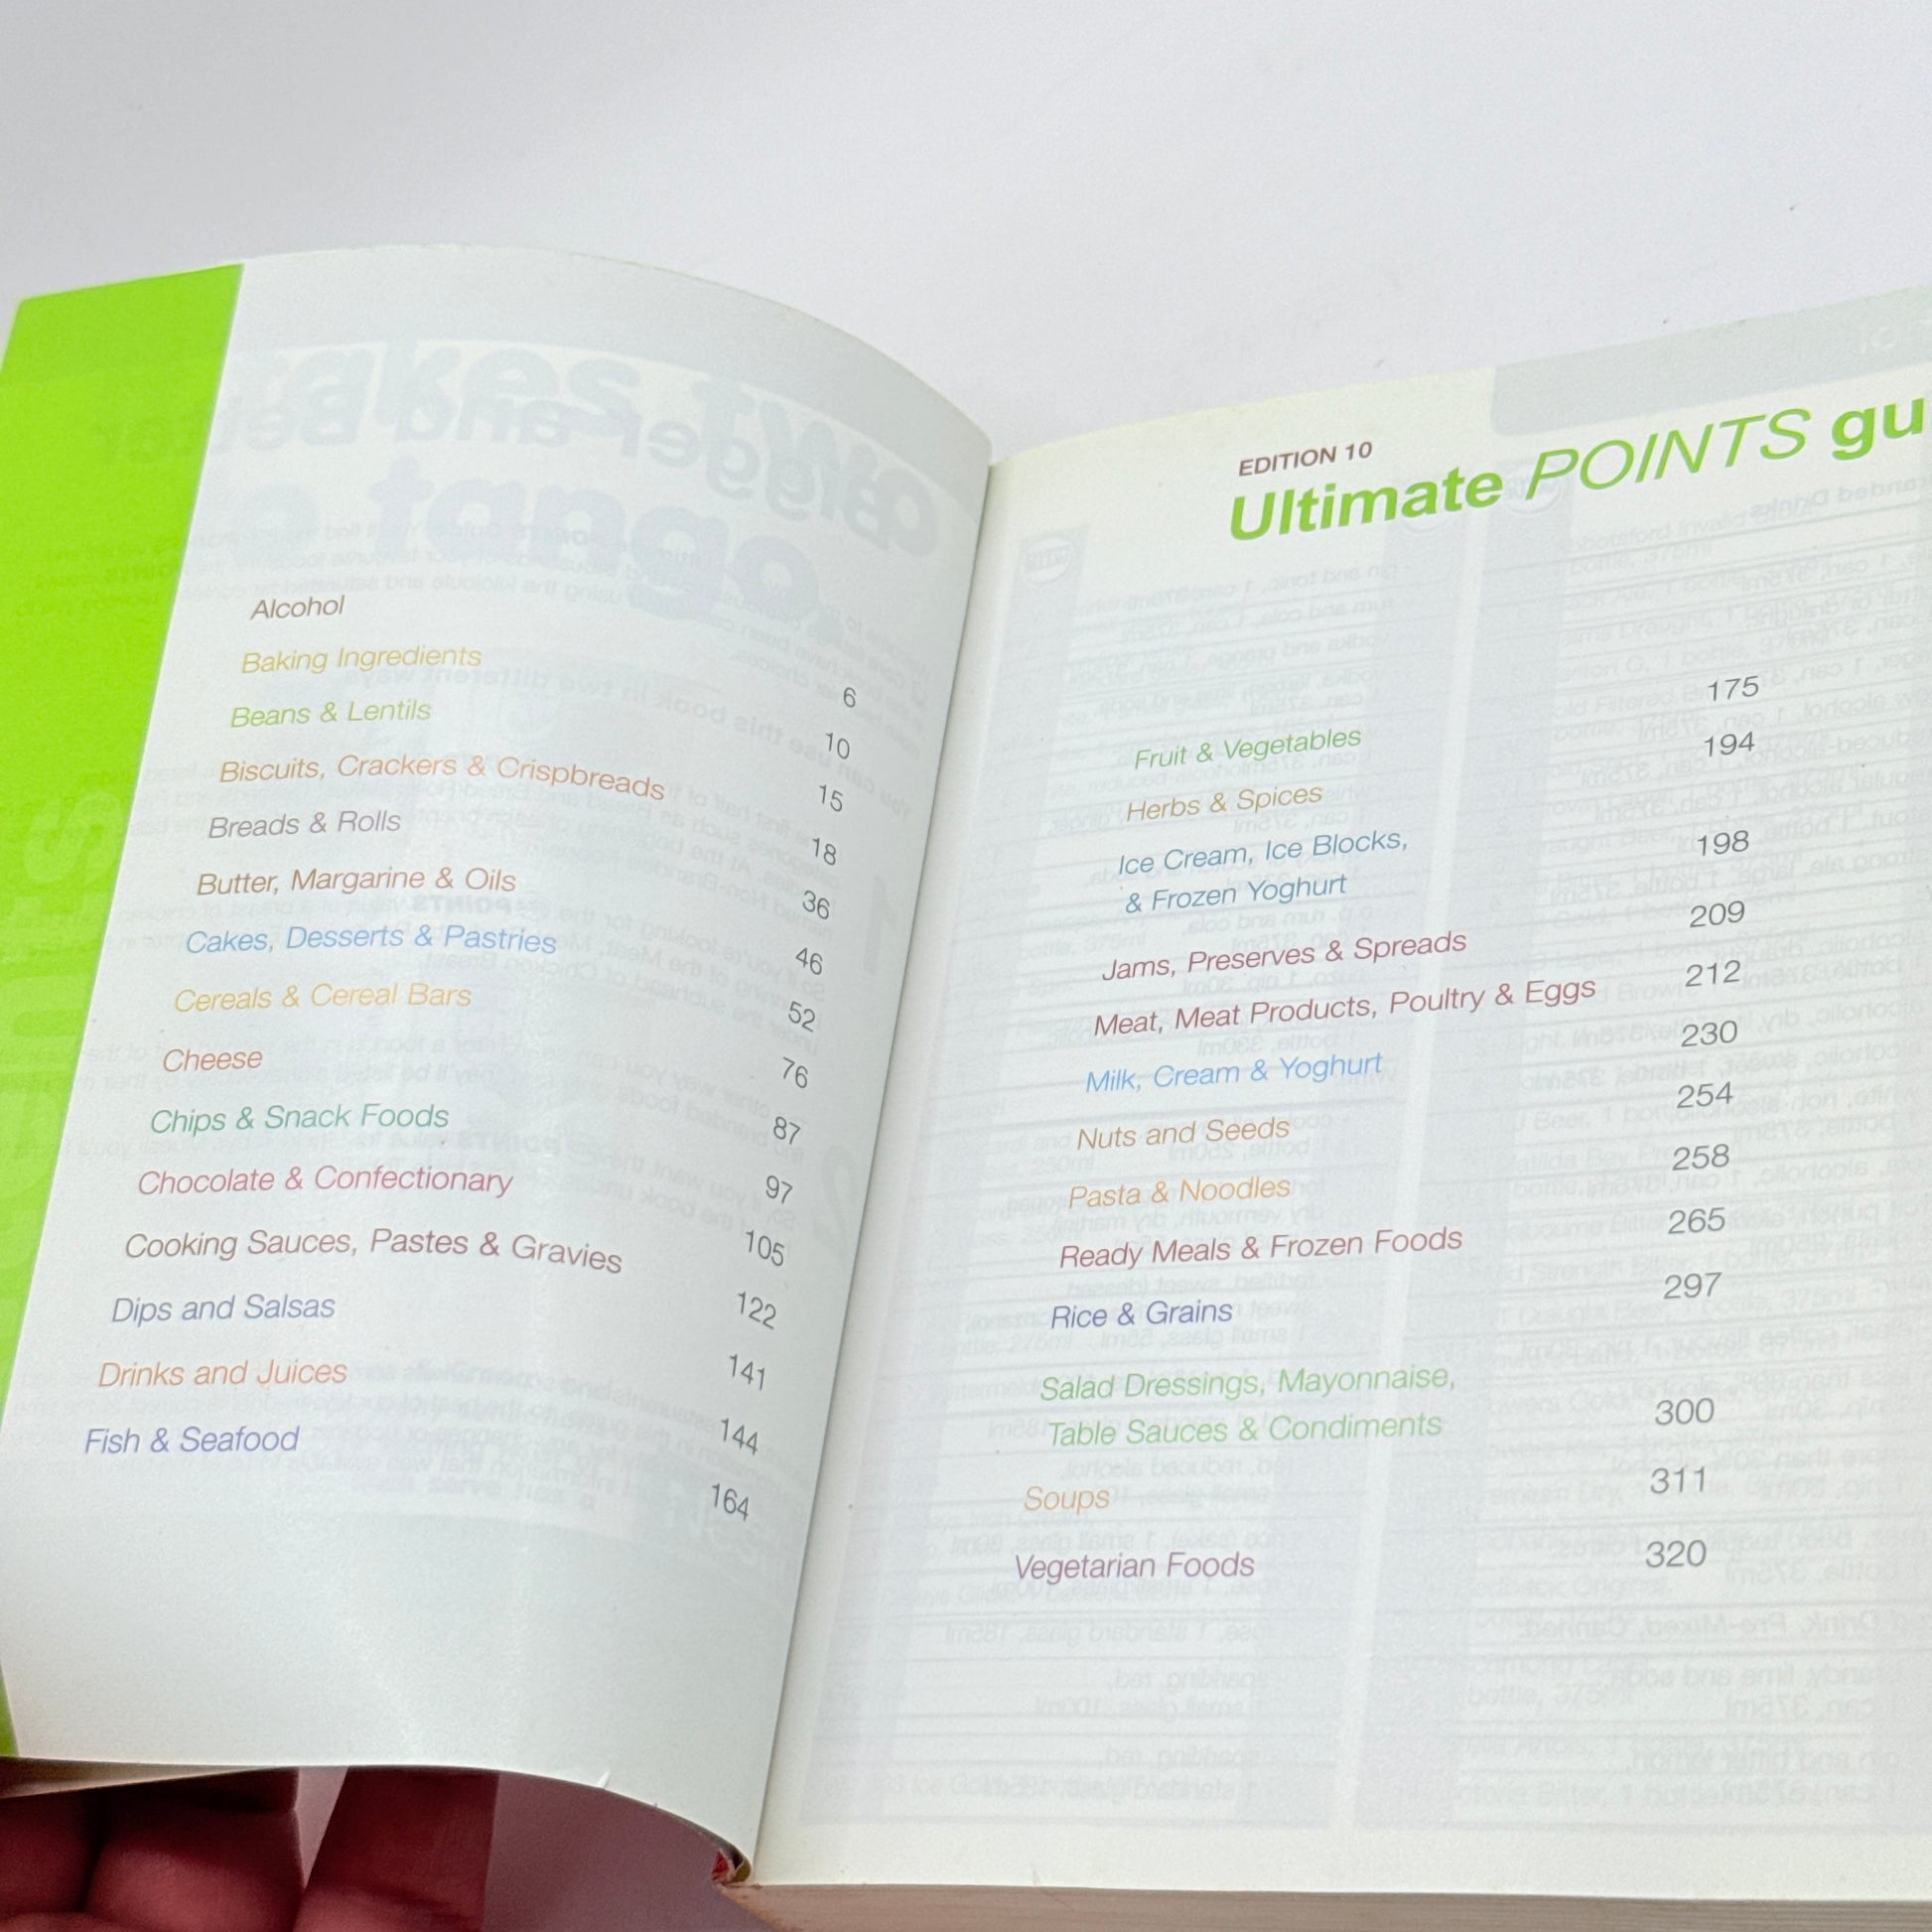 Alcohol 6
Baking Ingredients 10
Beans & Lentils 15
Biscuits, Crackers & Crispbreads 18
Breads & Rolls 36
Butter, Margarine & Oils 46
Cakes, Desserts & Pastries 52
Cereals & Cereal Bars 76
Cheese 87
Chips & Snack Foods 97
Chocolate & Confectionary 105
Cooking Sauces, Pastes & Gravies 122
Dips and Salsas 141
Drinks and Juices 144
Fish & Seafood 164
EDITION 10
Ultimate POINTS gu
Fruit & Vegetables 175
Herbs & Spices 194
Ice Cream, Ice Blocks,
& Frozen Yoghurt 198
Jams, Preserves & Spreads 209
Meat, Meat Products, Poultry & Eggs 212
Milk, Cream & Yoghurt 230
Nuts and Seeds 254
Pasta & Noodles 258
Ready Meals & Frozen Foods 265
Rice & Grains 297
Salad Dressings, Mayonnaise,
Table Sauces & Condiments 300
Soups 311
Vegetarian Foods 320